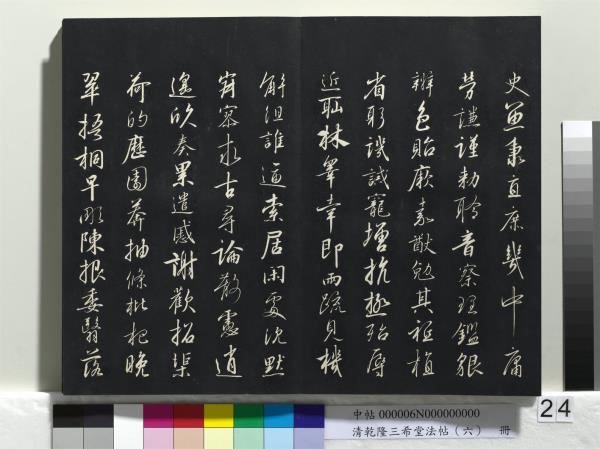 史魚秉直庶幾中庸
勞謙謹勅聆音察理鑑貌
辨色貽厥嘉猷勉其祗植
省躬譏誡寵增抗極殆辱
近恥林皋幸即兩疏見機
解組誰逼索居閑處沈默
寂寥求古尋論散慮逍
遙欣奏累遣慼謝歡招渠
荷的歷園莽抽條枇杷晚
翠梧桐早彫陳根委翳落
中帖 000006N000000000
清乾隆三希堂法帖(六) 冊
24